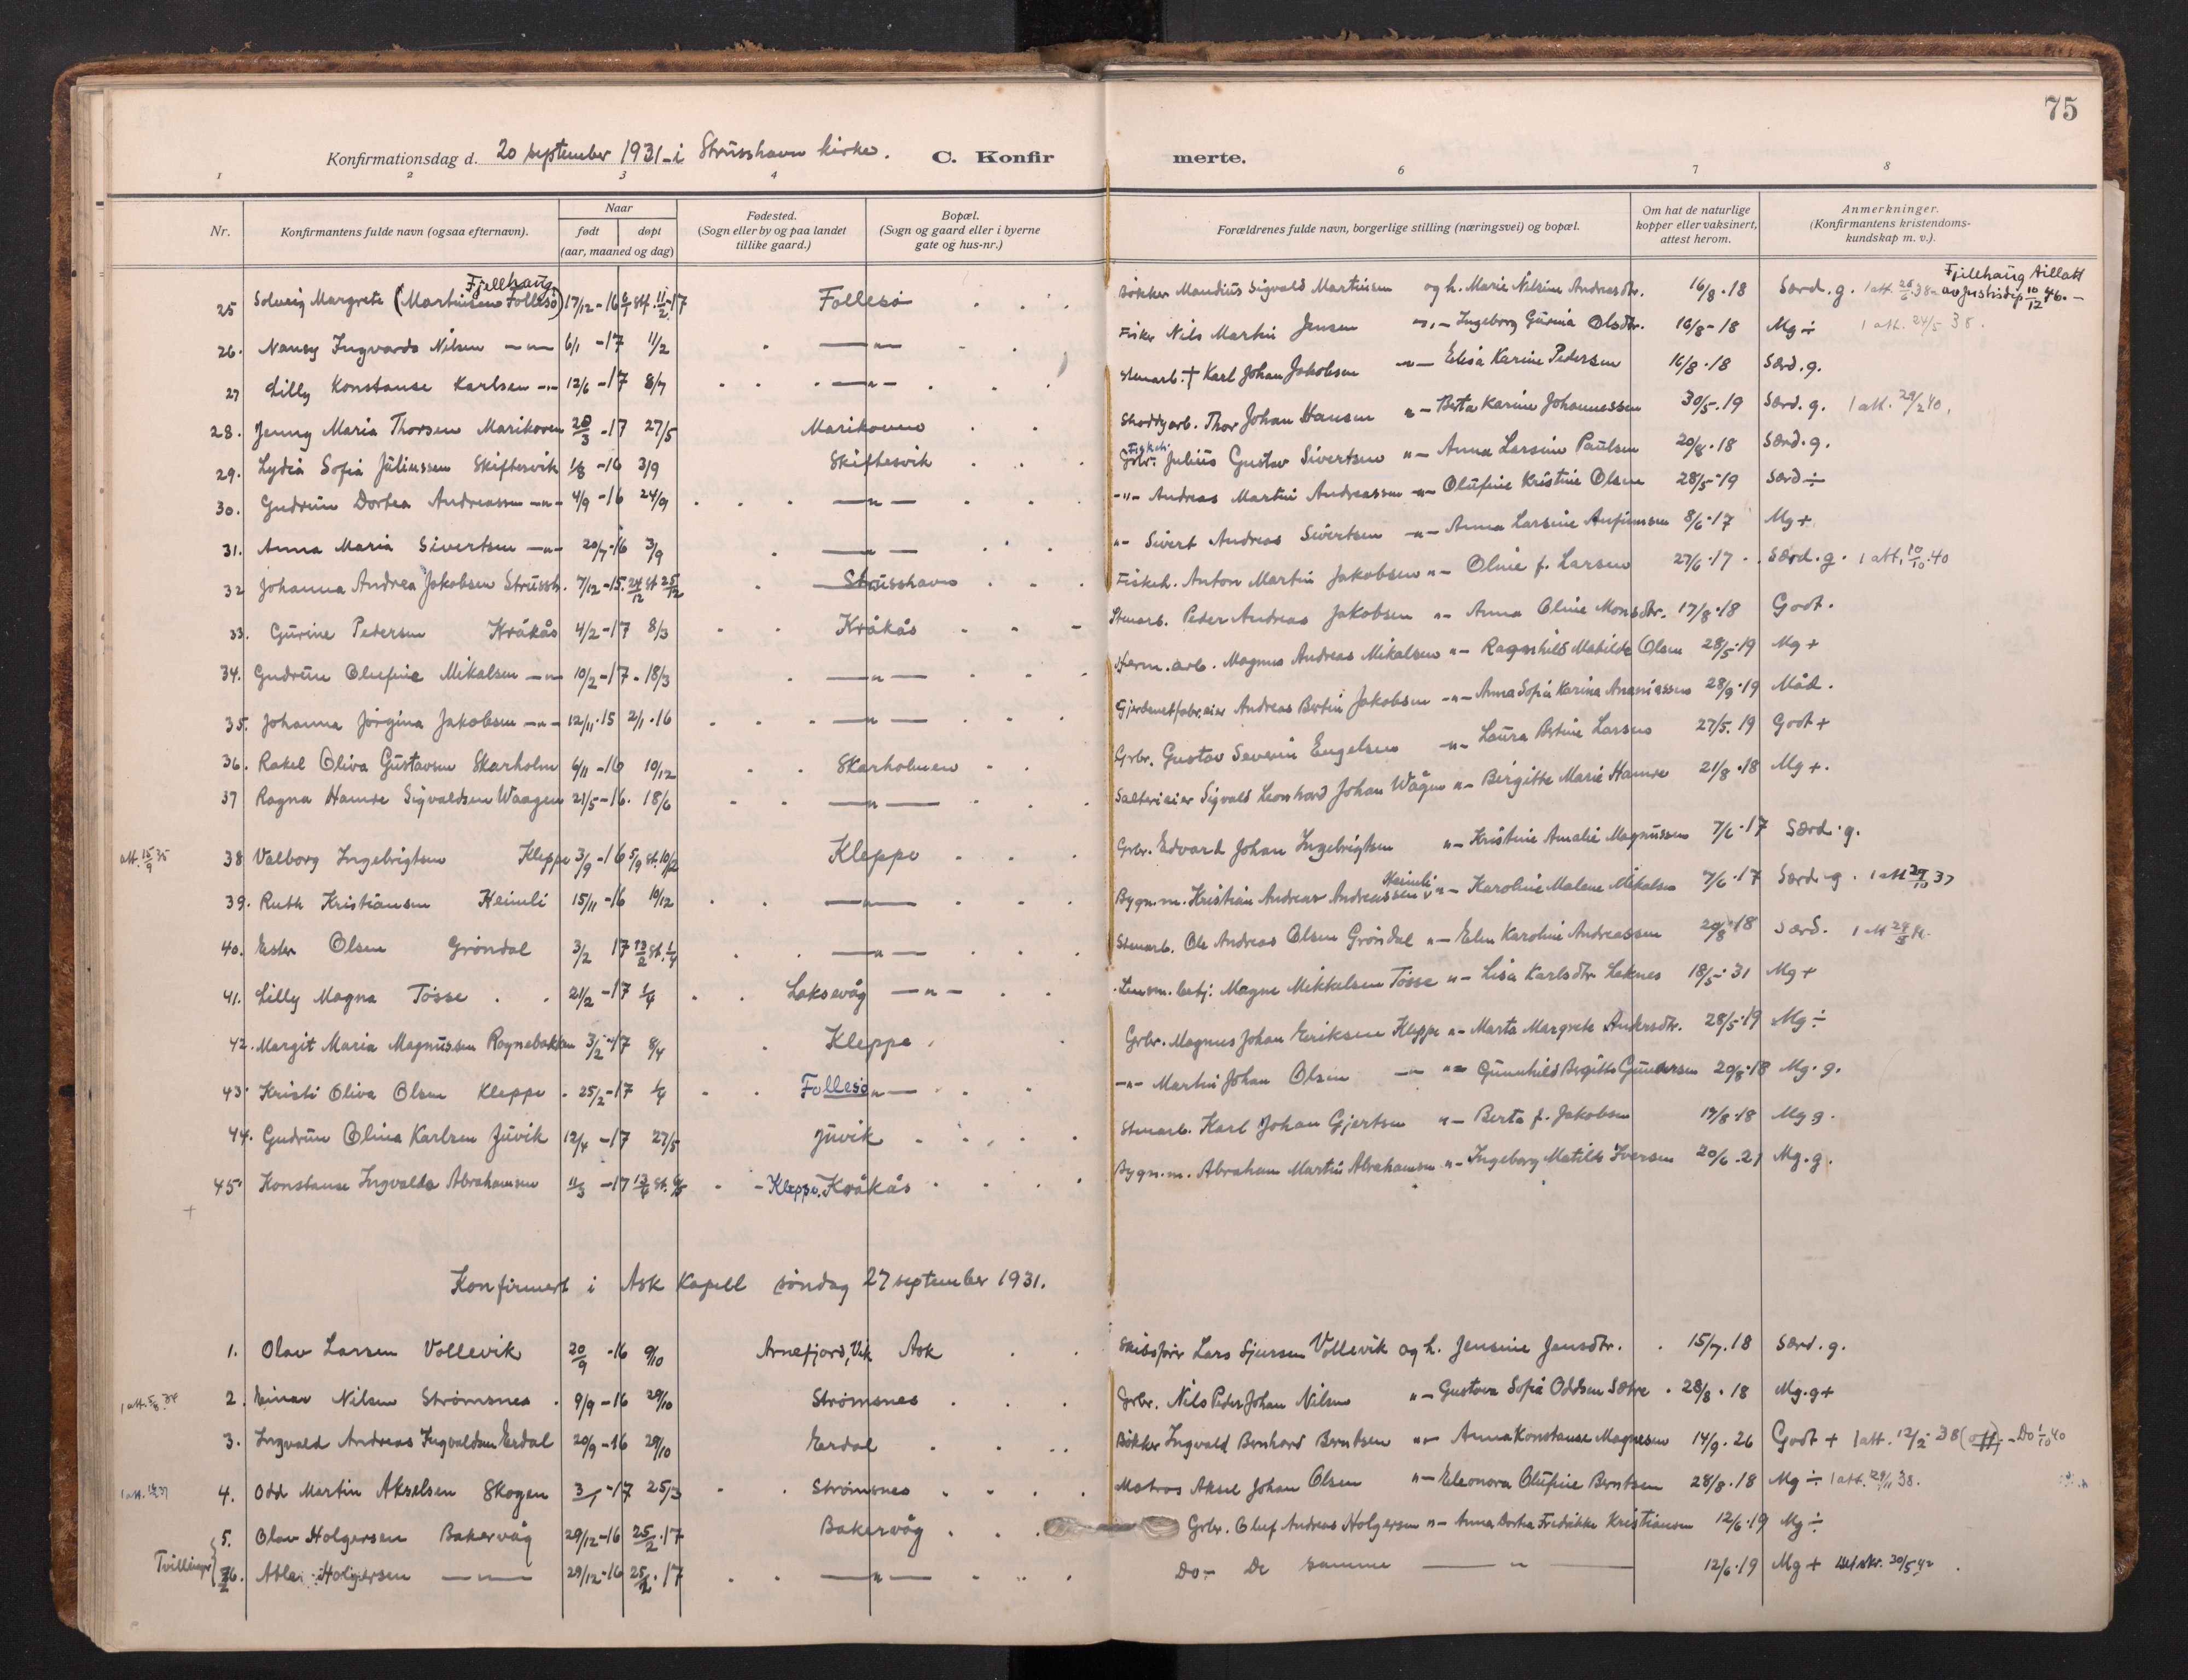 75
Konfirmationsdag d. 20 september 1931 - i Strusshavn kirke. C. Konfirmerte.
1 2 3 4 6 7 8
Nr. Konfirmantens fulde navn (ogsaa efternavn). Naar født døpt (aar, maaned og dag) Fødested. (Sogn eller by og paa landet tillike gaard.) Bopæl. (Sogn og gaard eller i byerne gate og hus-nr.) Forældrenes fulde navn, borgerlige stilling (næringsvei) og bopæl. Om hat de naturlige kopper eller vaksinert, attest herom. Anmerkninger. (Konfirmantens kristendoms-kundskap m. v.).
Fjellhaug Fjellhaug tillatt
25 Solveig Margrete (Martinsen Follesø) 17/12-16 6/1 st. 11/2-17 Follesø Bøkker Maudius Sigvald Martinsen og h. Marie Nilsine Andreasdtr. 16/8.18 Særd. g. 1 att. 25/6.38 - av Justisdep 10/12 46. -
26. Nancy Ingvarda Nilsen -"- 6/1 -17 11/2 -"- Fisker Nils Martin Jensen -"- Ingeborg Gurina Olsdtr. 16/8-18 Mg ÷ 1 att. 24/5 38.
27 Lilly Konstanse Karlsen -"- 12/6 -17 8/7 -"- Stenarb. † Karl Johan Jakobsen -"- Elisa Karine Pedersen 16/8.18 Særd. g.
28. Jenny Maria Thorsen Marikoven 28/3 -17 27/5 Marikoven Shoddyarb. Thor Johan Hansen "- Berta Karine Johannessen 30/5.19 Særd. g. 1 att. 29/2 40.
29. Lydia Sofia Juliussen Skiftesvik 1/8 -16 3/9 Skiftesvik Fiskeh. Julius Gustav Sivertsen "- Anna Larsine Paulsen 20/8.18 Særd. g.
30. Gudrun Dortea Andreassen -"- 4/9 -16 24/9 -"- -"- Andreas Martin Andreassen -"- Olufine Kristine Olsen 28/5-19 Særd ÷
31. Anna Maria Sivertsen -"- 20/7-16 3/9 -"- "- Sivert Andreas Sivertsen -"- Anna Larsine Anfinnsen 8/6-17 Mg +
32 Johanna Andrea Jakobsen Strussh. 7/12-15. 24/12 st 25/12 Strusshavn Fiskeh. Anton Martin Jakobsen "- Oline f. Larsen 27/6.17 Særd. g. 1 att. 10/10.40
33. Gurine Pedersen Kråkås 4/2-17 8/3 Kråkås Stenarb. Peder Andreas Jakobsen "- Anna Oline Monsdtr. 17/8.18 Godt.
34. Gudrun Olufine Mikalsen -"- 10/2-17. 18/3 -"- Herm. arb. Magnus Andreas Mikalsen "- Ragnhild Matilde Olsen 28/5.19 Mg +
35. Johanna Jørgina Jakobsen -"- 12/11.15 2/1.16 -"- Gjerdenetfabr.eier Andreas Bertin Jakobsen -"- Anna Sofia Karina Ananiassen 28/9.19 Måd.
36. Rakel Oliva Gustavsen Skarholm 6/11 -16 10/12 Skarholmen Grbr. Gustav Severin Engelsen -"- Laura Bertine Larsen 27/5.19 Godt +
37 Ragna Hamre Sigvaldsen Waagen 21/5-16. 18/6 -"- Salterieier Sigvald Leonhard Johan Wågen "- Birgitte Marie Hamre 21/8.18 Mg +.
att. 15/9 35 38 Valborg Ingebrigtsen Kleppe 3/9 -16 5/9 st. 10/12 Kleppe Grbr. Edvard Johan Ingebrigtsen "- Kristine Amalie Magnussen 7/6.17 Særd. g.
39. Ruth Kristiansen Heimli 15/11 -16 10/12 -"- Bygn.m. Kristian Andreas Andreassen Heimli "- Karoline Malene Mikalsen 7/6.17 Særd. g. 1 att 29/10 37
40. Ester Olsen Grøndal 3/2 17 13/2 st. 1/4 -"- Stenarb. Ole Andreas Olsen Grøndal "- Elen Karoline Andreassen 20/8.18 Særd.
41. Lilly Magna Tøsse 21/2-17 1/4 Laksevåg -"- Lensm. betj. Magne Mikkelsen Tøsse "- Lisa Karlsdtr. Leknes 18/5.31 Mg +
42. Margit Maria Magnussen Roynebakken 3/2-17 8/4 Kleppe Grbr. Magnus Johan Eriksen Kleppe "- Marta Margrete Andersdtr. 28/5.19 Mg ÷
43. Kristi Oliva Olsen Kleppe 25/2-17 1/4 Follesø -"- -"- Martin Johan Olsen -"- Gunnhild Birgitte Gundersen 20/8.18 Mg. g.
44. Gudrun Olina Karlsen Juvik 12/4 -17 27/5 Juvik Stenarb. Karl Johan Gjertsen "- Berta f. Jakobsen 17/8.18 Mg g.
45. Konstanse Ingvalda Abrahamsen 11/3 -17 13/4 st. 6/5 - Kleppe. Kråkås Bygn.m. Abraham Martin Abrahamsen "- Ingeborg Matilde Iversen 20/6.21 Mg. g.
Konfirmert i Ask Kapell søndag 27 september 1931.
1. Olav Larsen Vollevik 20/9 -16 9/10 Arnefjord, Vik Ask Skibsfører Lars Sjursen Vollevik og h. Jensine Jensdtr. 15/7.18 Særd. g.
2. Einar Nilsen Strømsnes 9/9 -16 29/10 Strømsnes Grbr. Nils Peder Johan Nilsen "- Gustava Sofie Oddsen Sætre 28/8.18 Mg. g+
3. Ingvald Andreas Ingvaldsen Erdal 20/9-16 29/10 Erdal Bøkker Ingvald Bernhard Berntsen "- Anna Konstanse Magnesen 14/9.26 Godt + 1 att. 12/2-38 - Do 1/10 40
4. Odd Martin Akselsen Skogen 3/1-17 25/3 Strømsnes Matros Aksel Johan Olsen "- Eleonora Olufine Berntsen 28/8.18 Mg ÷ 1 att. 29/11 38.
5. Olav Holgersen Bakervåg 29/12-16 25/2.17 Bakervåg Grbr. Oluf Andreas Holgersen "- Anna Dortea Fredrikke Kristiansen 12/6.19 Mg ÷
Tvillinger 6. Abla Holgersen -"- 29/12-16 25/2.17 -"- Do- De samme -"- 12/6.19 Mg + 30/5.42